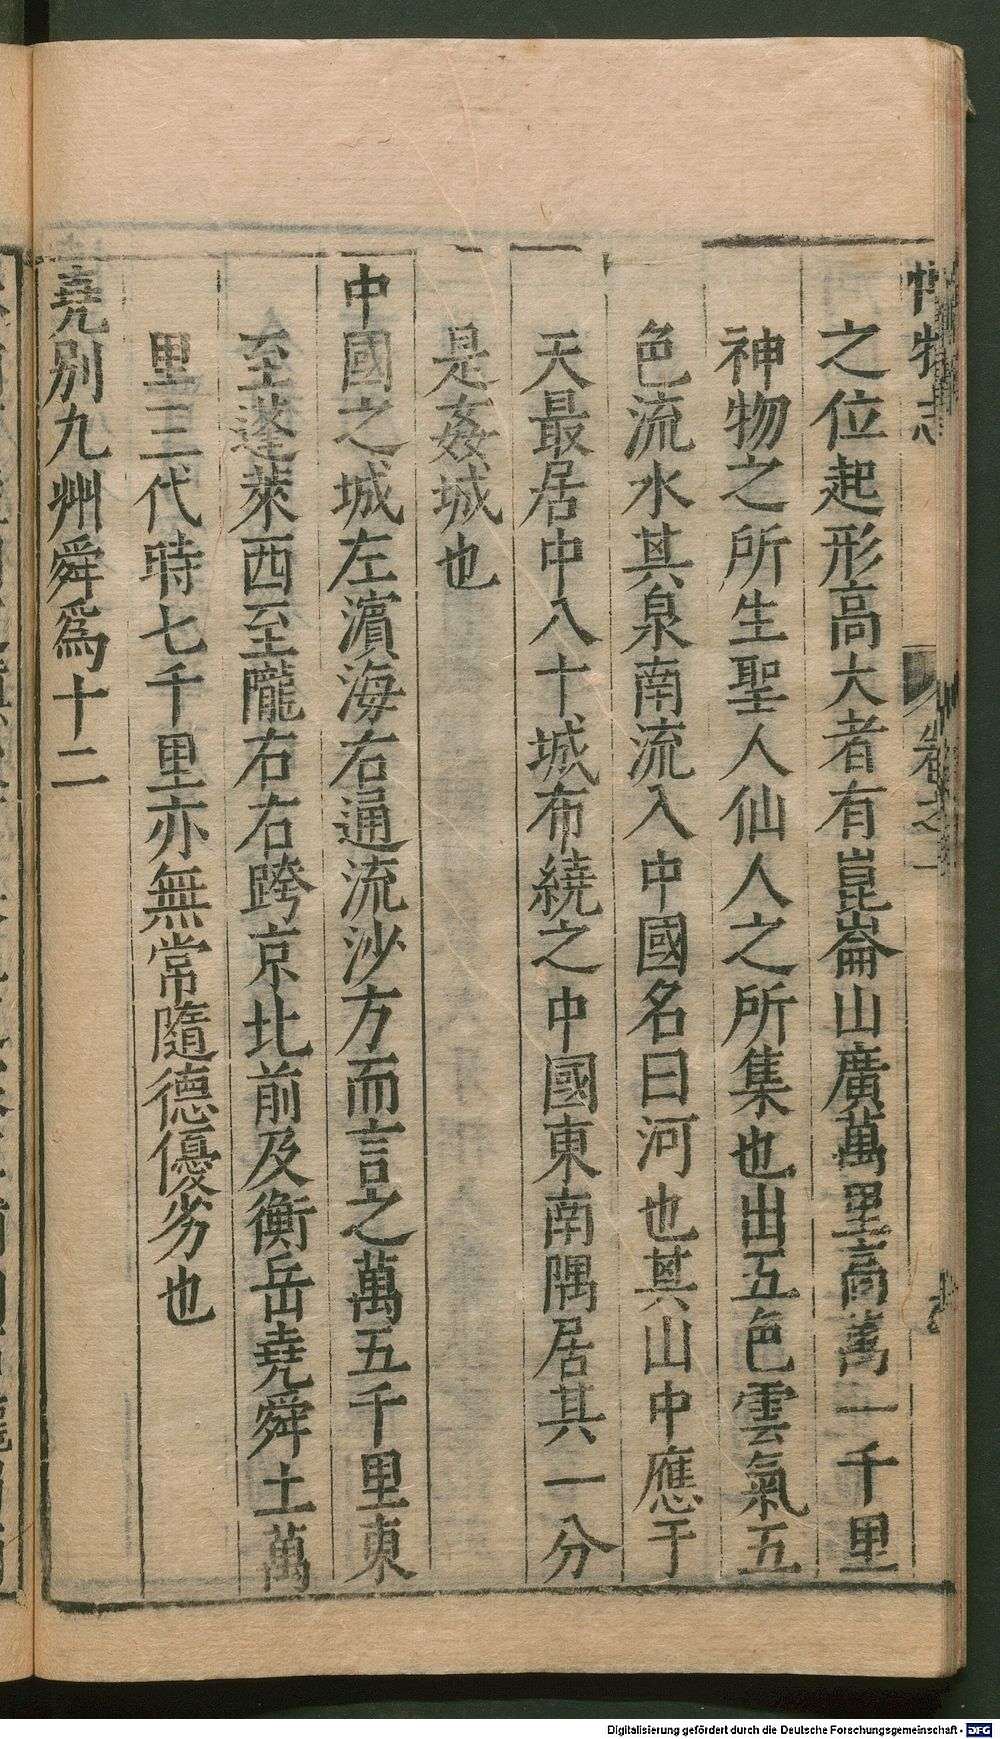 博物志 卷之一
之位起形高大者有崑崙山廣萬里高萬一千里
神物之所生聖人仙人之所集也出五色雲氣五
色流水其泉南流入中國名曰河也其山中應于
天最居中八十城布繞之中國東南隅居其一分
是姦城也
中國之城左濵海右通流沙方而言之萬五千里東
至蓬萊西至隴右右跨京北前及衡岳堯舜土萬
里三代時七千里亦無常隨德優劣也
堯別九州舜爲十二
Digitalisierung gefördert durch die Deutsche Forschungsgemeinschaft - DFG